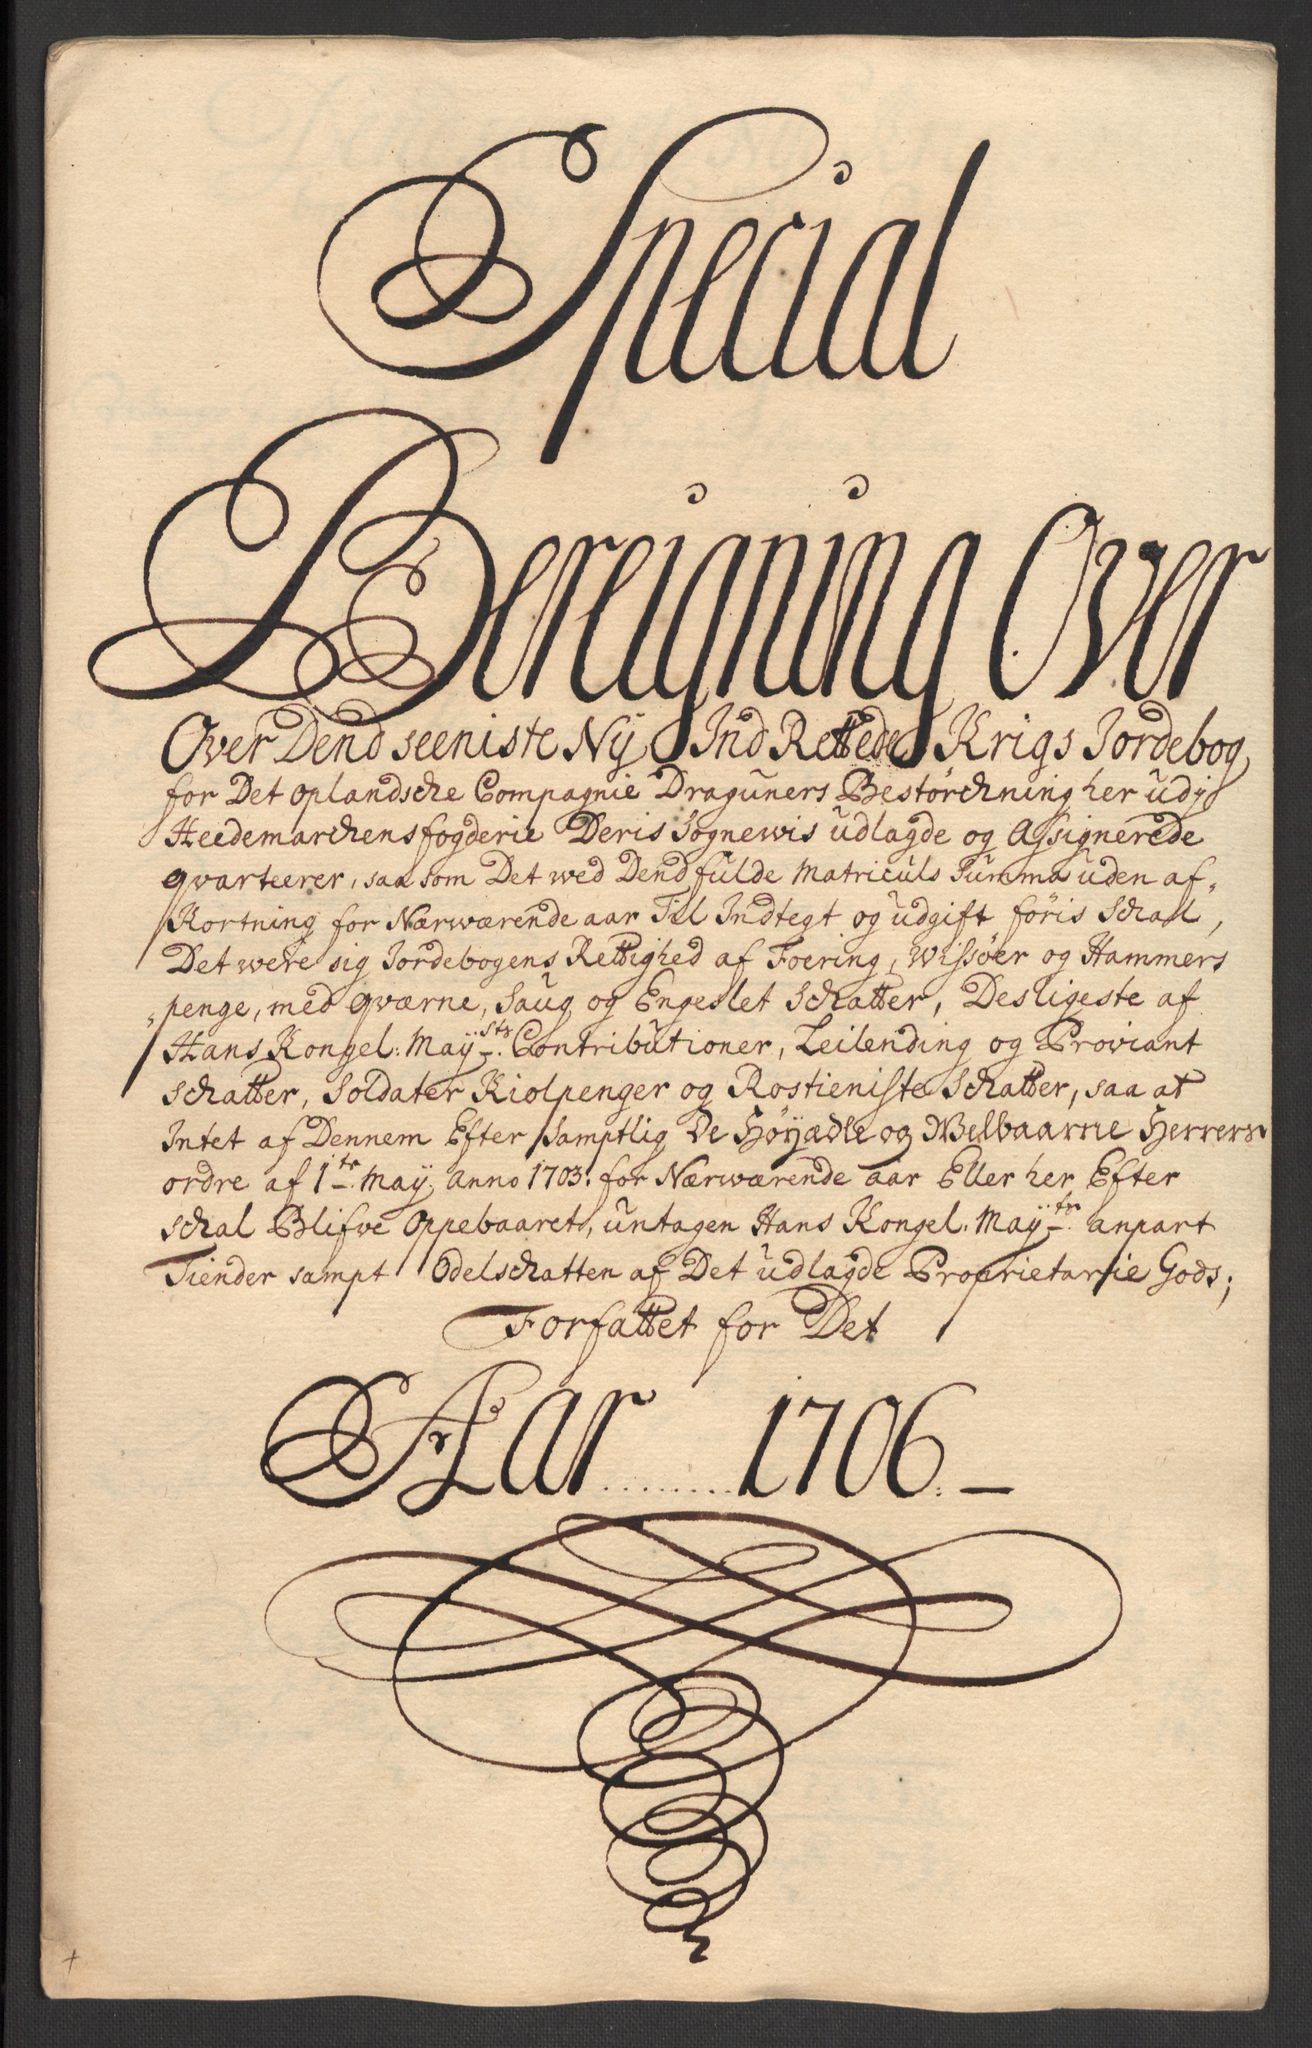 Special
Bereigning Over
Over Dend seeniste Ny Ind Rettede Krigs Jordebog
for Det oplandsche Compagnie Draguners Bestørchning her udj
Heedemarchens fogderie Deris Sognewis udlagde og Assignerede
qvarteerer, saa som Det wed Dend fulde Matriculs Summa uden af„
Kortning for Nærwærende aar Til Indtegt og udgift føris Schal,
Det were sig Jordebogens Rettighed af Foering, Wissøer og Hammers
„penge, med qværne, Saug og Engeslet Schatter, Desligeste af
Hans Kongel: Mayˢᵗˢ Contributioner, Leilending og Proviant
Schatter, Soldater Kiolpenger og Rostieniste Schatter, saa at
Intet af Dennem Efter Samptlig De Høyædle og Welbaarne Herrers
ordre af 1ᵗᵉ May anno 1703. for Nærwærende aar Eller her Efter
Schal Blifve Oppebaaret, untagen Hans Kongel: Mayᵗˢ anpart
Tiender sampt Odelschatten af Det udlagde Proprietarie Gods;
Forfattet for Det
Aar ........ 1706. –